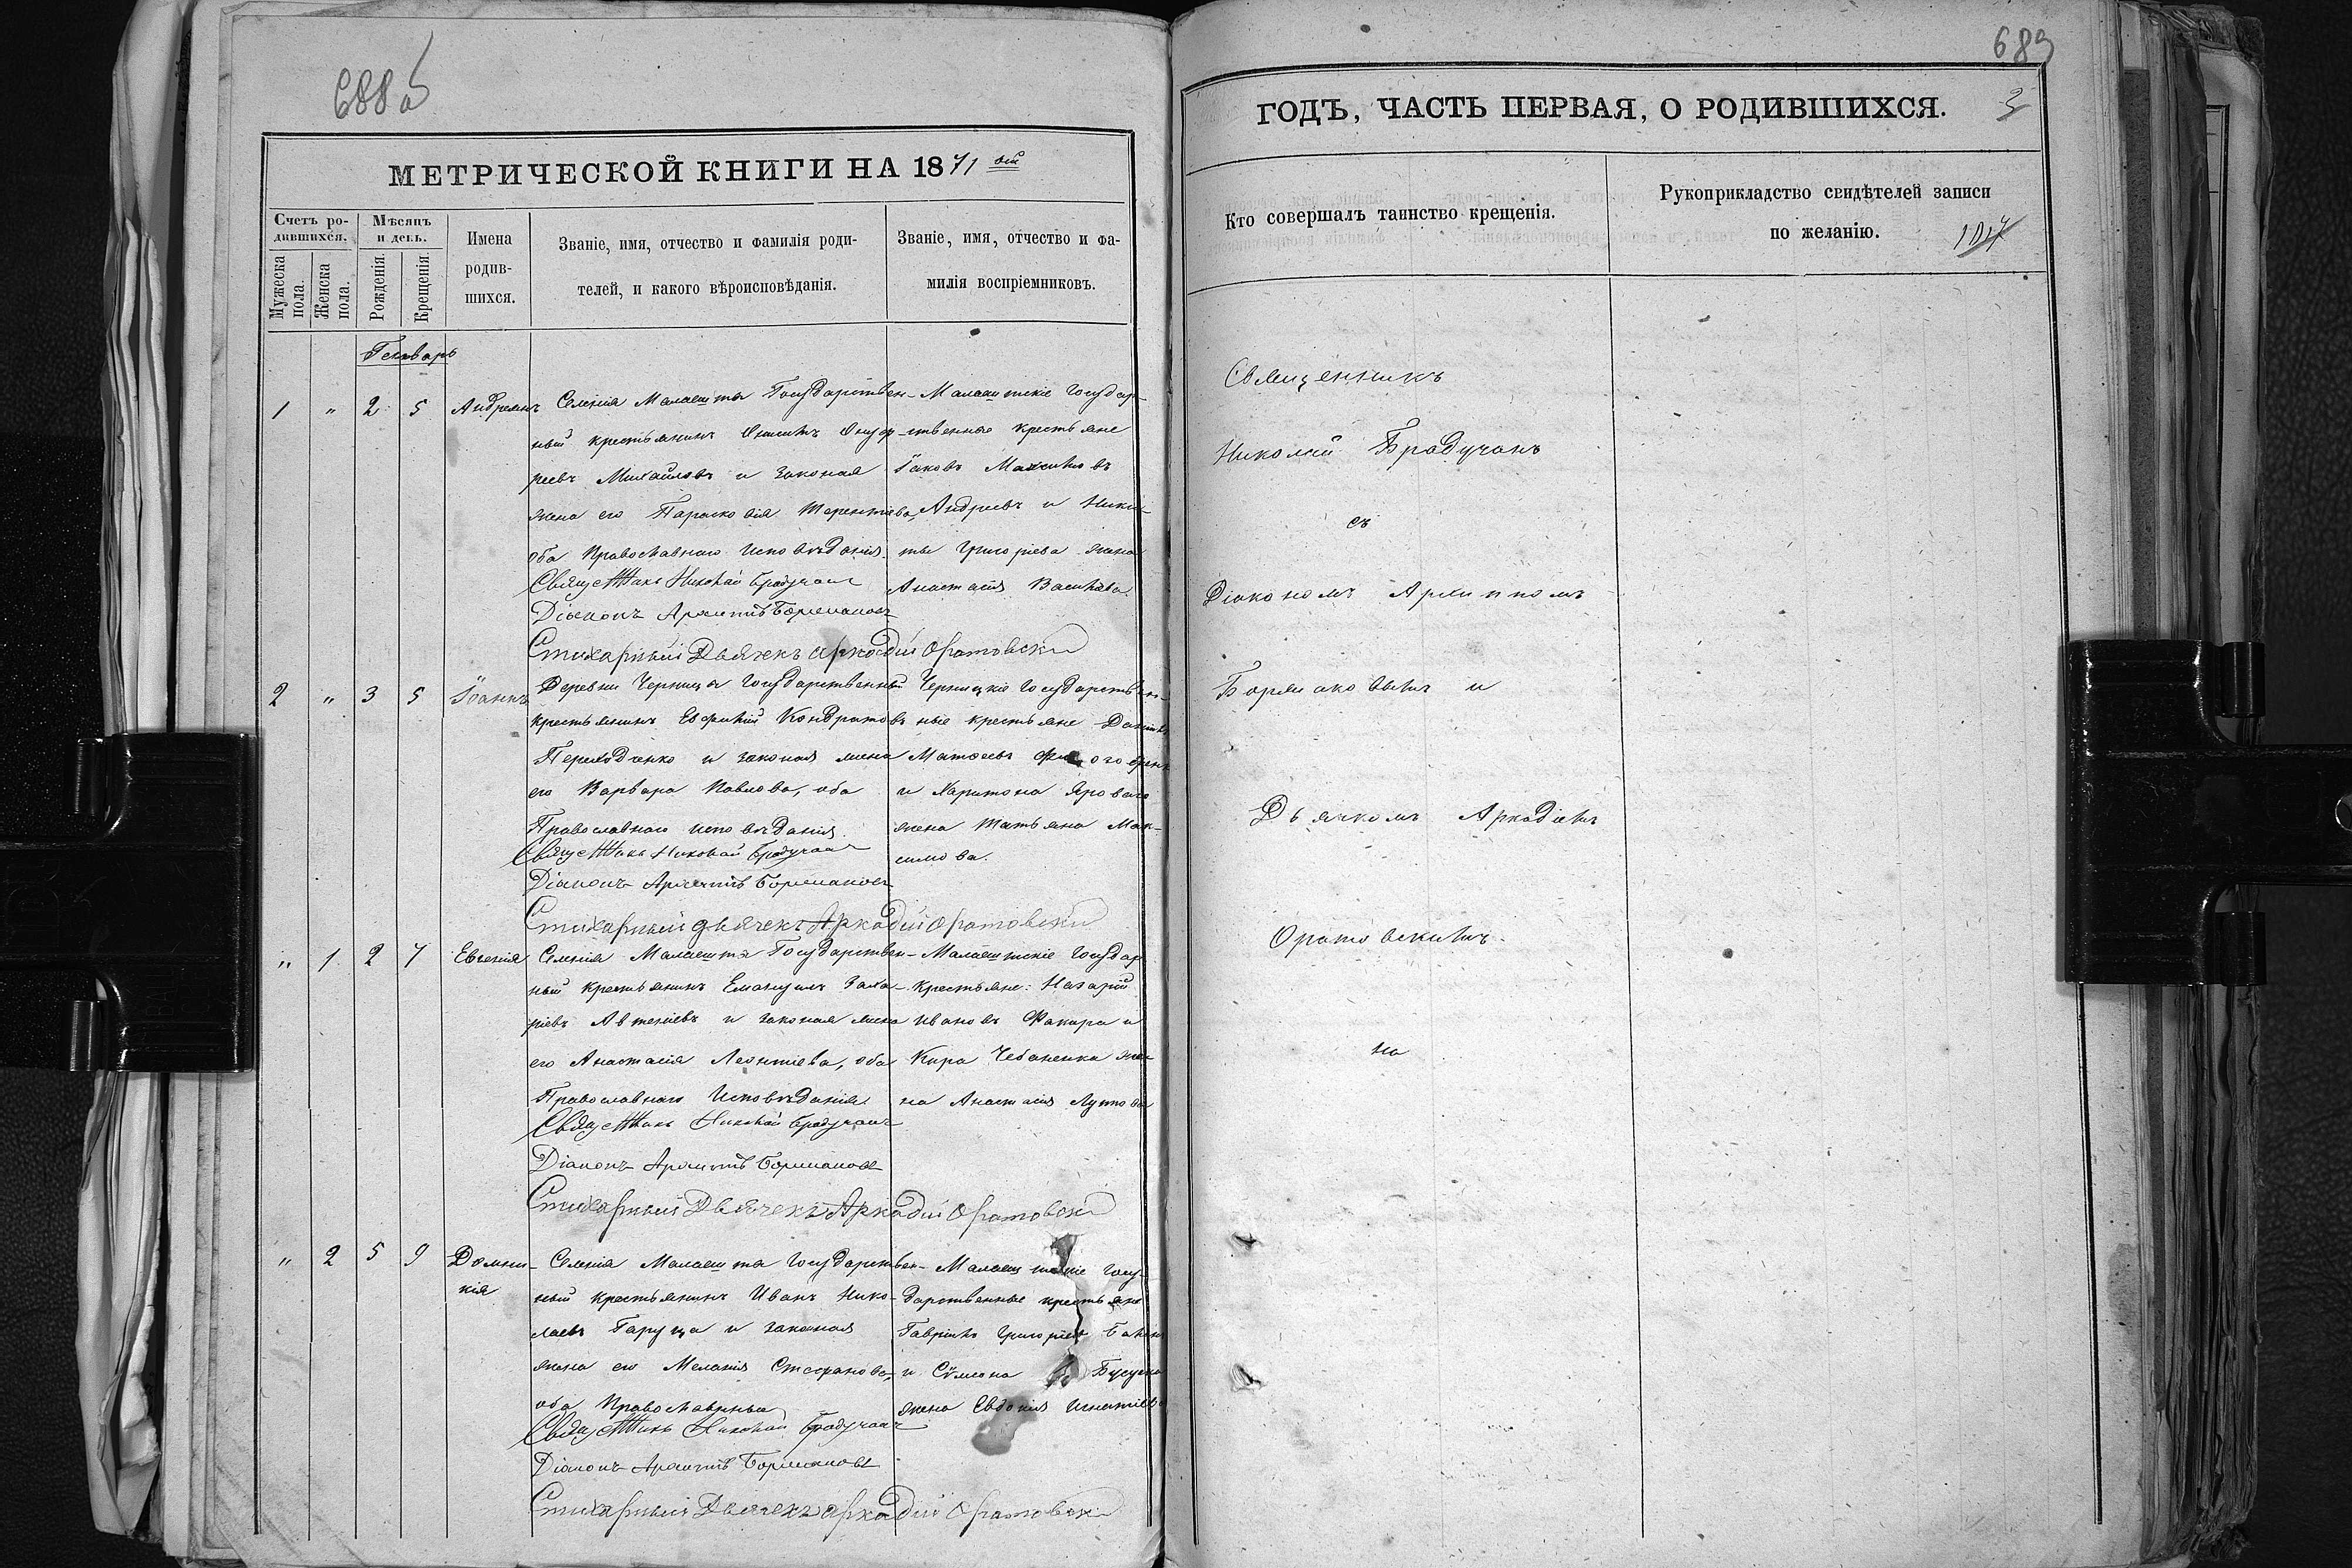 688 об
МЕТРИЧЕСКОЙ КНИГИ НА 1871 ый
Счетъ родившихся.
Мѣсяцъ и день.
Мужеска пола.
Женска пола.
Рожденія.
Крещенія.
Имена родившихся.
Званіе, имя, отчество и фамилія родителей, и какого вѣроисповѣданія.
Званіе, имя, отчество и фамилія воспріемниковъ.
Генварь
1 " 2 5 Андреянъ
Селенія Малаешта Государствен-
ный крестьянинъ
Михаиловъ и законая
жена его Парасковія Терентьева,
оба Православнаго Исповѣданія.
Священникъ Николай Брадучанъ
Діаконъ
Стихарный Дьячекъ Аркадій Оратовскій
Малаештскіе Государ-
ственные крестьяне
Іаковъ
Андреевъ и Ники-
ты Григоріева жена
Анастасія Васильева.
2 " 3 5 Іоаннъ
Деревни Черница Государственный
крестьянинъ Евфимій Кондратовъ
Переходченко и законая жена
его Варвара Павлова, оба
Православнаго исповѣданія.
Священникъ Николай Брадучанъ
Діаконъ
Стихарный дьячекъ Аркадій Оратовскій
Черницкіе Государствен-
ные крестьяне
Матѳеевъ
и Харитона Яроваго
жена Татьяна Мак-
симова.
" 1 2 7 Евгенія
Селенія Малаешта Государствен-
ный крестьянинъ Емануилъ Заха-
ріевъ Автеніевъ и законая жена
его Анастасія Леонтіева, оба
Православнаго Исповѣданія.
Священникъ Николай Брадучанъ
Діаконъ
Стихарный Дьячекъ Аркадій Оратовскій
Малаештскіе Государ
крестьяне: Назарій
Ивановъ Факира и
Кира Чебаненка же-
на Анастасія
" 2 5 9 Домни-
кія
Селенія Малаешта Государствен-
ный крестьянинъ Иванъ Нико-
лаевъ Гаруца и законая
жена его Меланія Стефанова,
оба Православныя
Священникъ Николай Брадучанъ
Діаконъ
Стихарный Дьячекъ Аркадій Оратовскій
Малаештскіе Госу-
дарственные крестьяне
Гавріилъ Григоріевъ
и Сѵмеона
жена Евдокія Игнатіева
689
ГОДЪ, ЧАСТЬ ПЕРВАЯ, О РОДИВШИХСЯ.
3
Кто совершалъ таинство крещенія.
Рукоприкладство свидѣтелей записи по желанію.
Священникъ
Николай Брадучанъ
съ
Діакономъ
и
Дьячкомъ Аркадіемъ
Оратовскимъ.